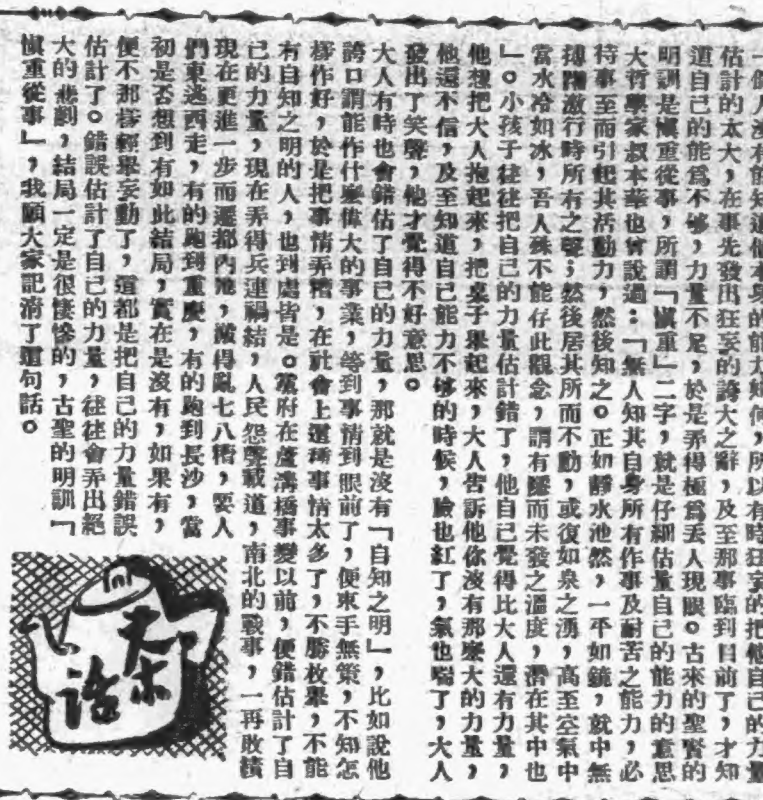 一個人沒有能知道他本身的能力如何，所以有時狂妄的把他自己的力量
估計的太大，在事先發出狂妄的誇大之辭，及至那事臨到目前了，才知
道自己的能爲不够，力量不足，於是弄得極爲丟人現眼。古來的聖賢的
明訓是愼重從事，所謂「愼重」二字，就是仔細估量自己的能力的意思
大哲學家叔本華也曾說過：「無人知其自身所有作事及耐苦之能力，必
待事至而引起其活動力，然後知之。正如靜水池然，一平如鏡，就中無
激行時所有之聲；然後居其所而不動，或復如泉之湧，高至空氣中
當水冷如冰，吾人殊不能存此觀念，謂有而未發之溫度，潛在其中也
」。小孩子往往把自己的力量估計錯了，他自己覺得比大人還有力量，
他想把大人抱起來，把桌子舉起來，大人告訴他你沒有那麽大的力量，
他還不信，及至知道自己能力不够的時候，臉也紅了，氣也喘了，大人
發出了笑聲，他才覺得不好意思。
大人有時也會錯估了自己的力量，那就是沒有「自知之明」，比如說他
誇口謂能作什麽偉大的事業，等到事情到眼前了，便束手無策，不知怎
樣作好，於是把事情弄糟，在社會上這種事情太多了，不勝枚舉，不能
有自知之明的人，也到處皆是。黨府在蘆溝橋事變以前，便錯估計了自
己的力量，現在弄得兵連禍結，人民怨聲載道，南北的戰事，一再敗績
現在更進一步而遷都內地，鬧得亂七八糟，要人
們東逃西走，有的跑到重慶，有的跑到長沙，當
初是否想到有如此結局，實在是沒有，如果有，
便不那樣輕舉妄動了，這都是把自己的力量錯誤
估計了。錯誤估計了自己的力量，往往會弄出絕
大的悲劇，結局一定是很悽慘的，古聖的明訓「
愼重從事」，我願大家記淸了這句話。
茶話